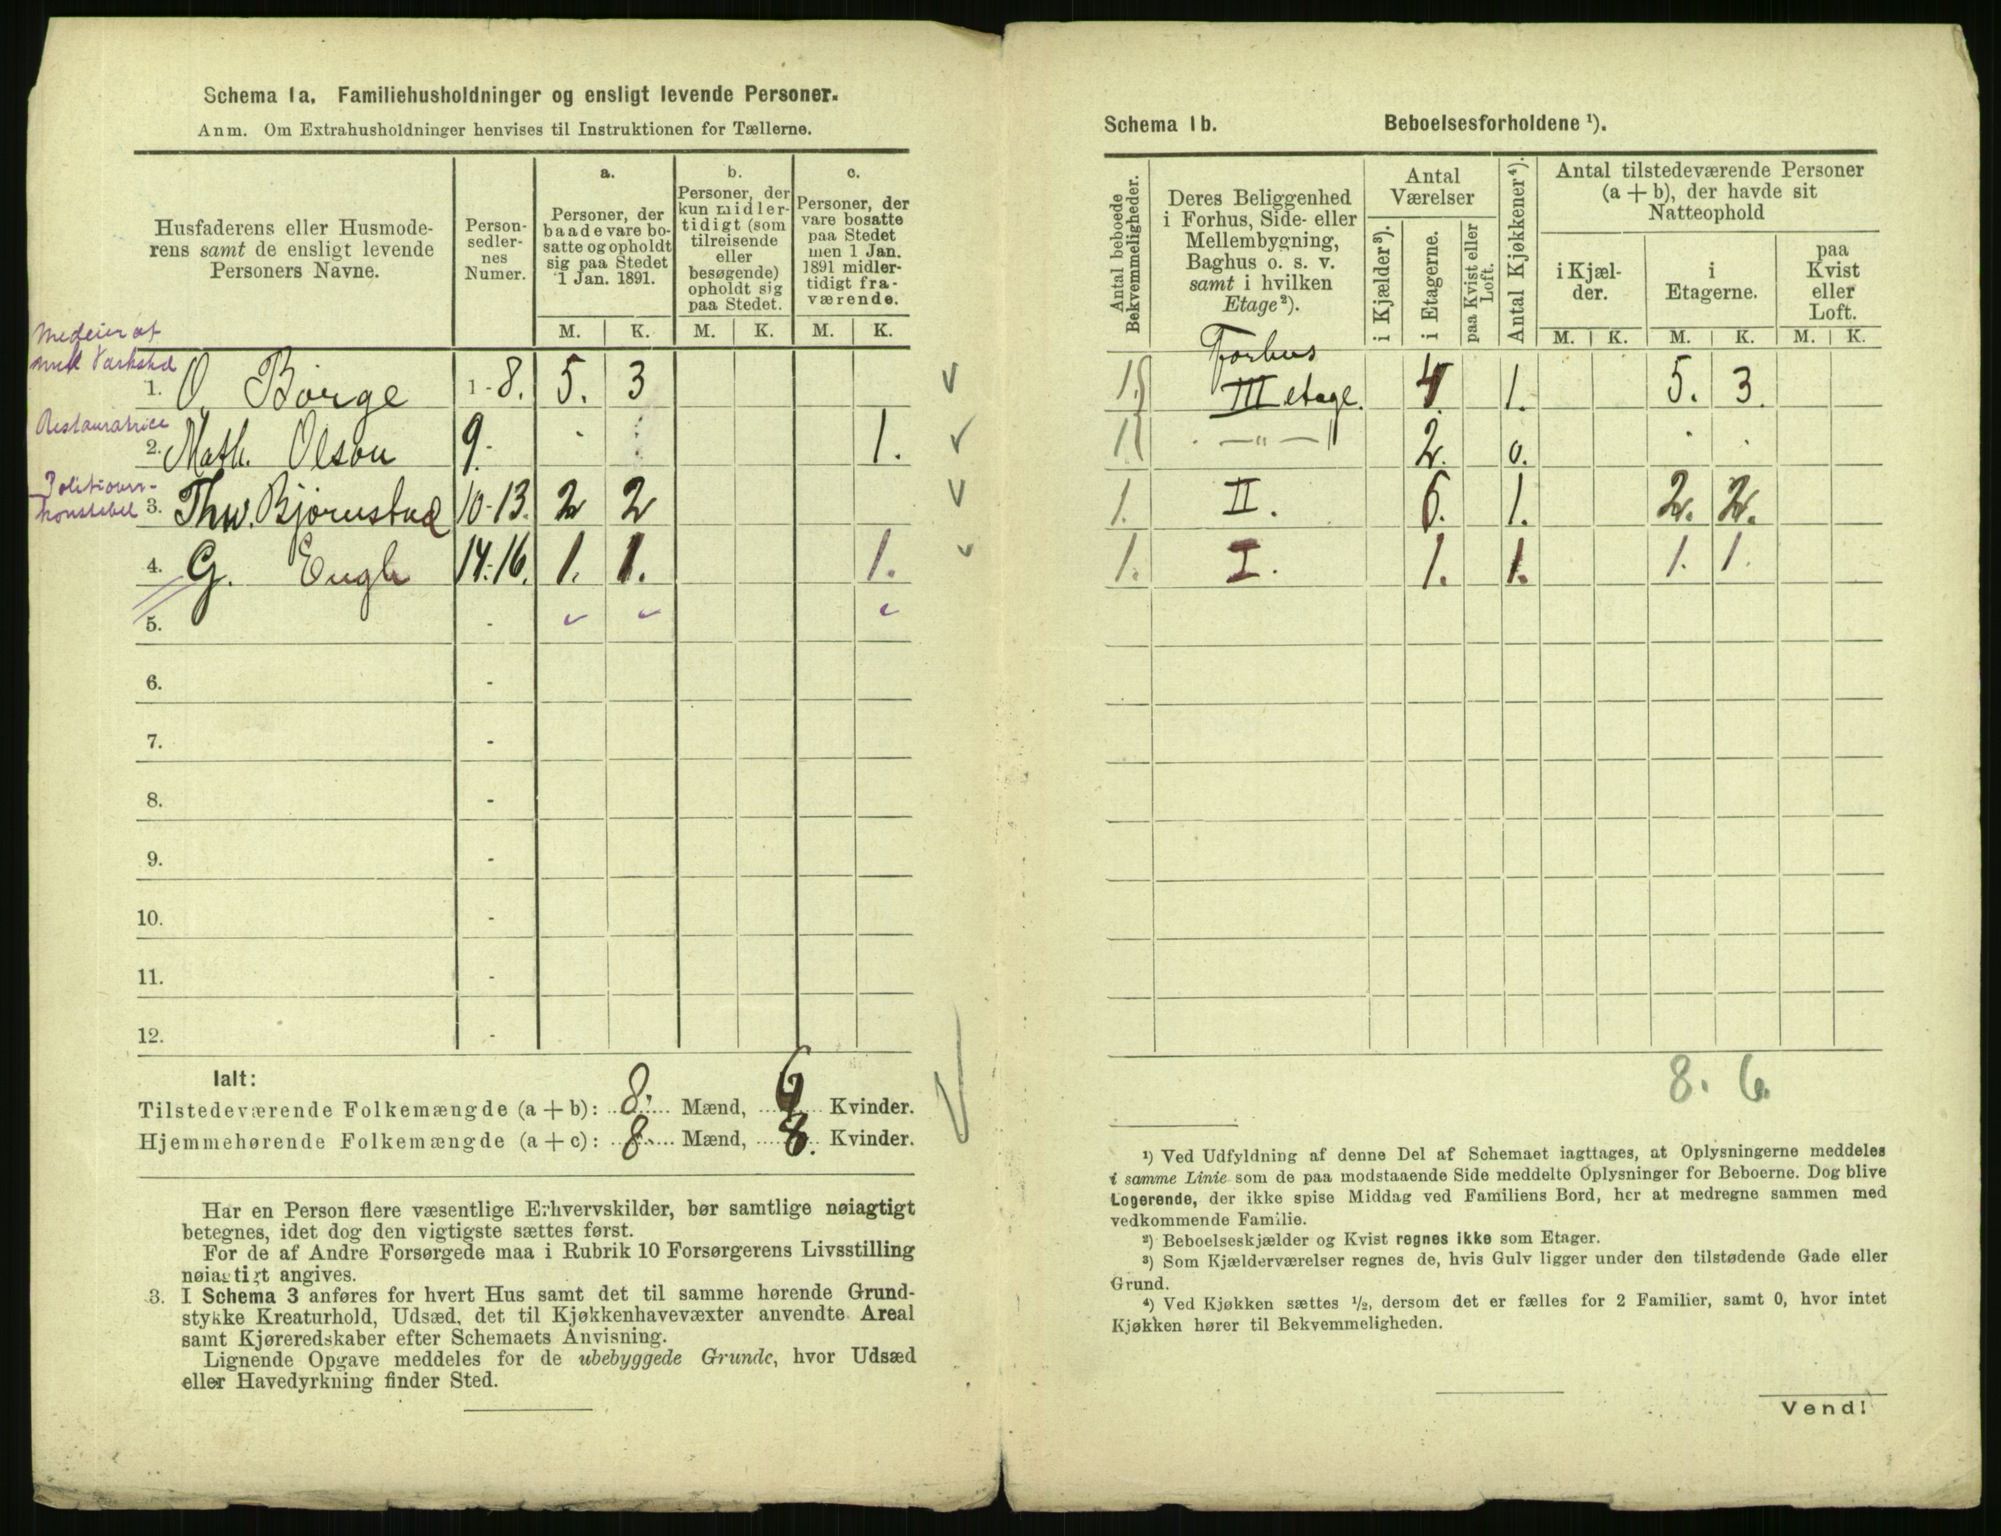 Schema 1a. Familiehusholdninger og ensligt levende Personer.
Anm. Om Extrahusholdninger henvises til Instruktionen for Tællerne.
Husfaderens eller Husmode-
rens samt de ensligt levende
Personers Navne.
Person-
sedler-
nes
Numer.
a.
Personer, der
baade vare bo-
satte og opholdt
sig paa Stedet
1 Jan. 1891.
b.
Personer, der
kun midler-
tidigt (som
tilreisende
eller
besøgende)
opholdt sig
paa Stedet.
c.
Personer, der
vare bosatte
paa Stedet
men 1 Jan.
1891 midler-
tidigt fra-
værende.
M. K. M. K. M. K.
Medeier af
1. O Børge 1-8. 5. 3
Restauratrice
2. Math. Olson 9. - 1.
konstabel
3. Thv. Bjørnstad 10-13. 2 2
4. G. Engh 14-16. 1. 1. 1.
5. -
6. -
7. -
8. -
9. -
10. -
11. -
12. -
Ialt:
Tilstedeværende Folkemængde (a + b): 8. Mænd, 6 Kvinder.
Hjemmehørende Folkemængde (a + c): 8. Mænd, 8. Kvinder.
Har en Person flere væsentlige Erhvervskilder, bør samtlige nøiagtigt
betegnes, idet dog den vigtigste sættes først.
For de af Andre Forsørgede maa i Rubrik 10 Forsørgerens Livsstilling
nøiagtigt angives.
3. I Schema 3 anføres for hvert Hus samt det til samme hørende Grund-
stykke Kreaturhold, Udsæd, det til Kjøkkenhavevæxter anvendte Areal
samt Kjøreredskaber efter Schemaets Anvisning.
Lignende Opgave meddeles for de ubebyggede Grunde, hvor Udsæd
eller Havedyrkning finder Sted.
Schema 1b. Beboelsesforholdene ¹).
Antal beboede
Bekvemmeligheder.
Deres Beliggenhed
i Forhus, Side- eller
Mellembygning,
Baghus o. s. v.
samt i hvilken
Etage²).
Antal
Værelser
i Kjælder³).
i Etagerne.
paa Kvist eller
Loft.
Antal Kjøkkener⁴).
Antal tilstedeværende Personer
(a + b), der havde sit
Natteophold
i Kjæl-
der.
i
Etagerne.
paa
Kvist
eller
Loft.
M. K. M. K. M. K.
Forhus
1. III etage. 4. 1. 5. 3.
1. - — " — 2. 0. . .
1. II. 6. 1. 2. 2.
1. I. 1. 1. 1. 1.
8. 6.
¹) Ved Udfyldning af denne Del af Schemaet iagttages, at Oplysningerne meddeles
i samme Linie som de paa modstaaende Side meddelte Oplysninger for Beboerne. Dog blive
Logerende, der ikke spise Middag ved Familiens Bord, her at medregne sammen med
vedkommende Familie.
²) Beboelseskjælder og Kvist regnes ikke som Etager.
³) Som Kjælderværelser regnes de, hvis Gulv ligger under den tilstødende Gade eller
Grund.
⁴) Ved Kjøkken sættes ½, dersom det er fælles for 2 Familier, samt 0, hvor intet
Kjøkken hører til Bekvemmeligheden.
Vend!